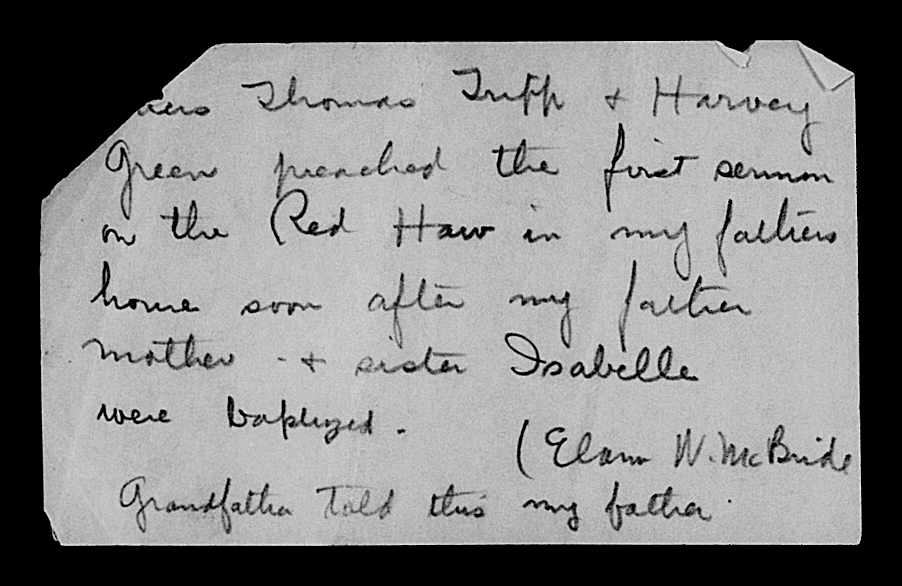 Thomas Tripp + Harvey
Green preached the first sermon
on the Red Haw in my fathers
home soon after my father
mother - + sister Isabelle
were baptized.
(Elam W. McBride
Grandfather Told this my father.